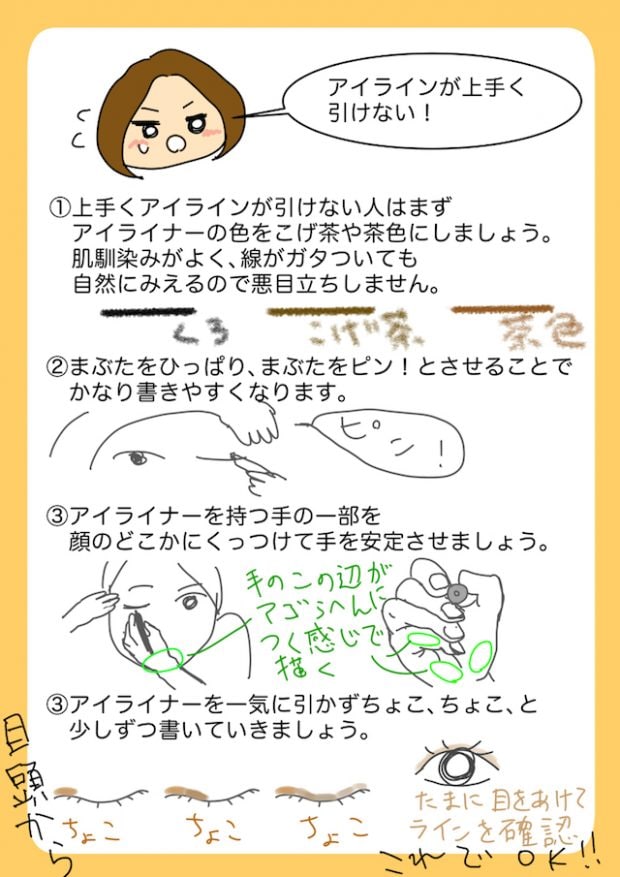 アイラインが上手く
引けない！
①上手くアイラインが引けない人はまず
アイライナーの色をこげ茶や茶色にしましょう。
肌馴染みがよく、線がガタついても
自然にみえるので悪目立ちしません。
くろ
こげ茶
茶色
②まぶたをひっぱり、まぶたをピン！とさせることで
かなり書きやすくなります。
ピン！
③アイライナーを持つ手の一部を
顔のどこかにくっつけて手を安定させましょう。
手のこの辺が
アゴらへんに
つく感じで
描く
③アイライナーを一気に引かずちょこ、ちょこ、と
少しずつ書いていきましょう。
目頭から
ちょこ
ちょこ
ちょこ
たまに目をあけて
ラインを確認
これでOK!!